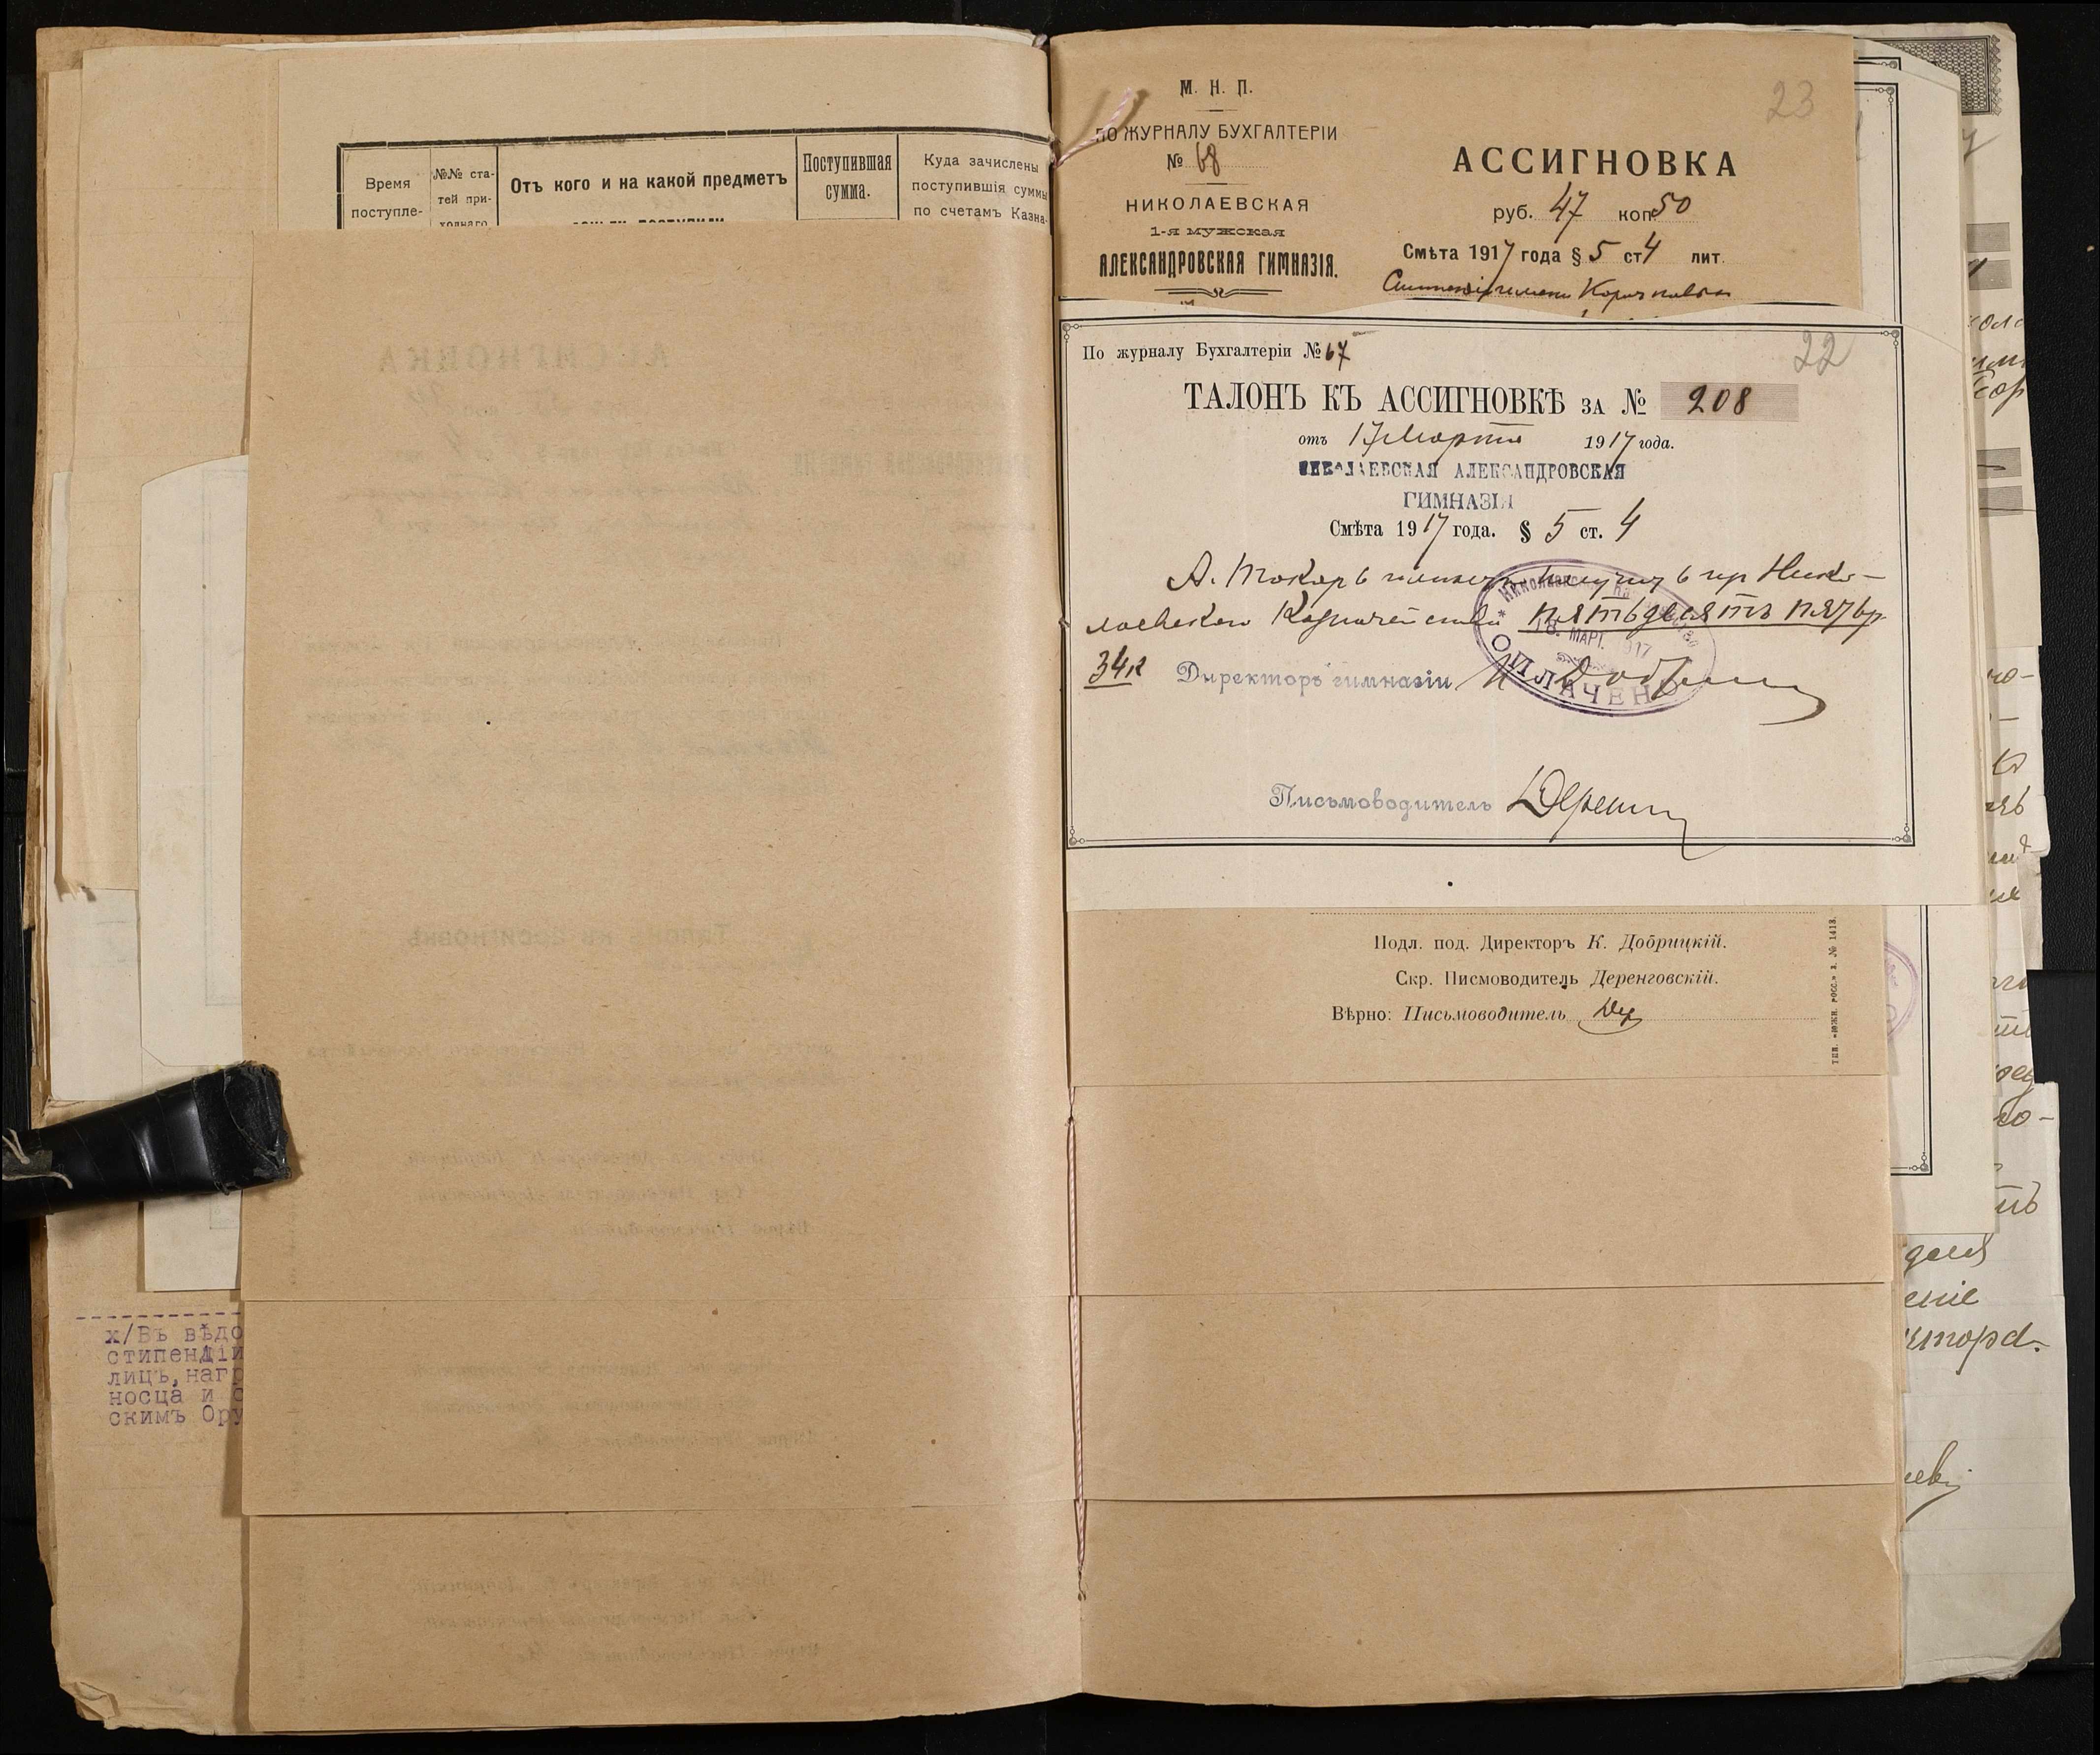 Время
поступле-
№№ ста-
тей при-
ходнаго
Отъ кого и на какой предметъ
Поступившая
сумма.
Куда зачислены
поступившія суммы
по счетамъ Казна-
х/Въ вѣдо
стипендіи
лицъ, нагр
носца и с
скимъ Ору
М. Н. П.
ПО ЖУРНАЛУ БУХГАЛТЕРІИ
№ 68
НИКОЛАЕВСКАЯ
1-я мужская
АЛЕКСАНДРОВСКАЯ ГИМНАЗІЯ.
23
АССИГНОВКА
руб. 47 коп 50
Смѣта 1917 года § 5 ст 4 лит.
По журналу Бухгалтеріи № 67
22
ТАЛОНЪ КЪ АССИГНОВКѢ ЗА № 208
отъ 17 Марта 1917 года.
НИКОЛАЕВСКАЯ АЛЕКСАНДРОВСКАЯ
ГИМНАЗІЯ
Смѣта 1917 года. § 5 ст. 4
А. Токарь получить Нико-
лаевском Казначействѣ пятьдесятъ пять р
34 к Директоръ гимназіи
МАРТ. 1917
ОПЛАЧЕНО
Письмоводитель
Подл. под. Директоръ К. Добрицкій.
Скр. Писмоводитель Деренговскій.
Вѣрно: Письмоводитель Дер
ТИП. «ЮЖН. РОСС.» З. № 1413.